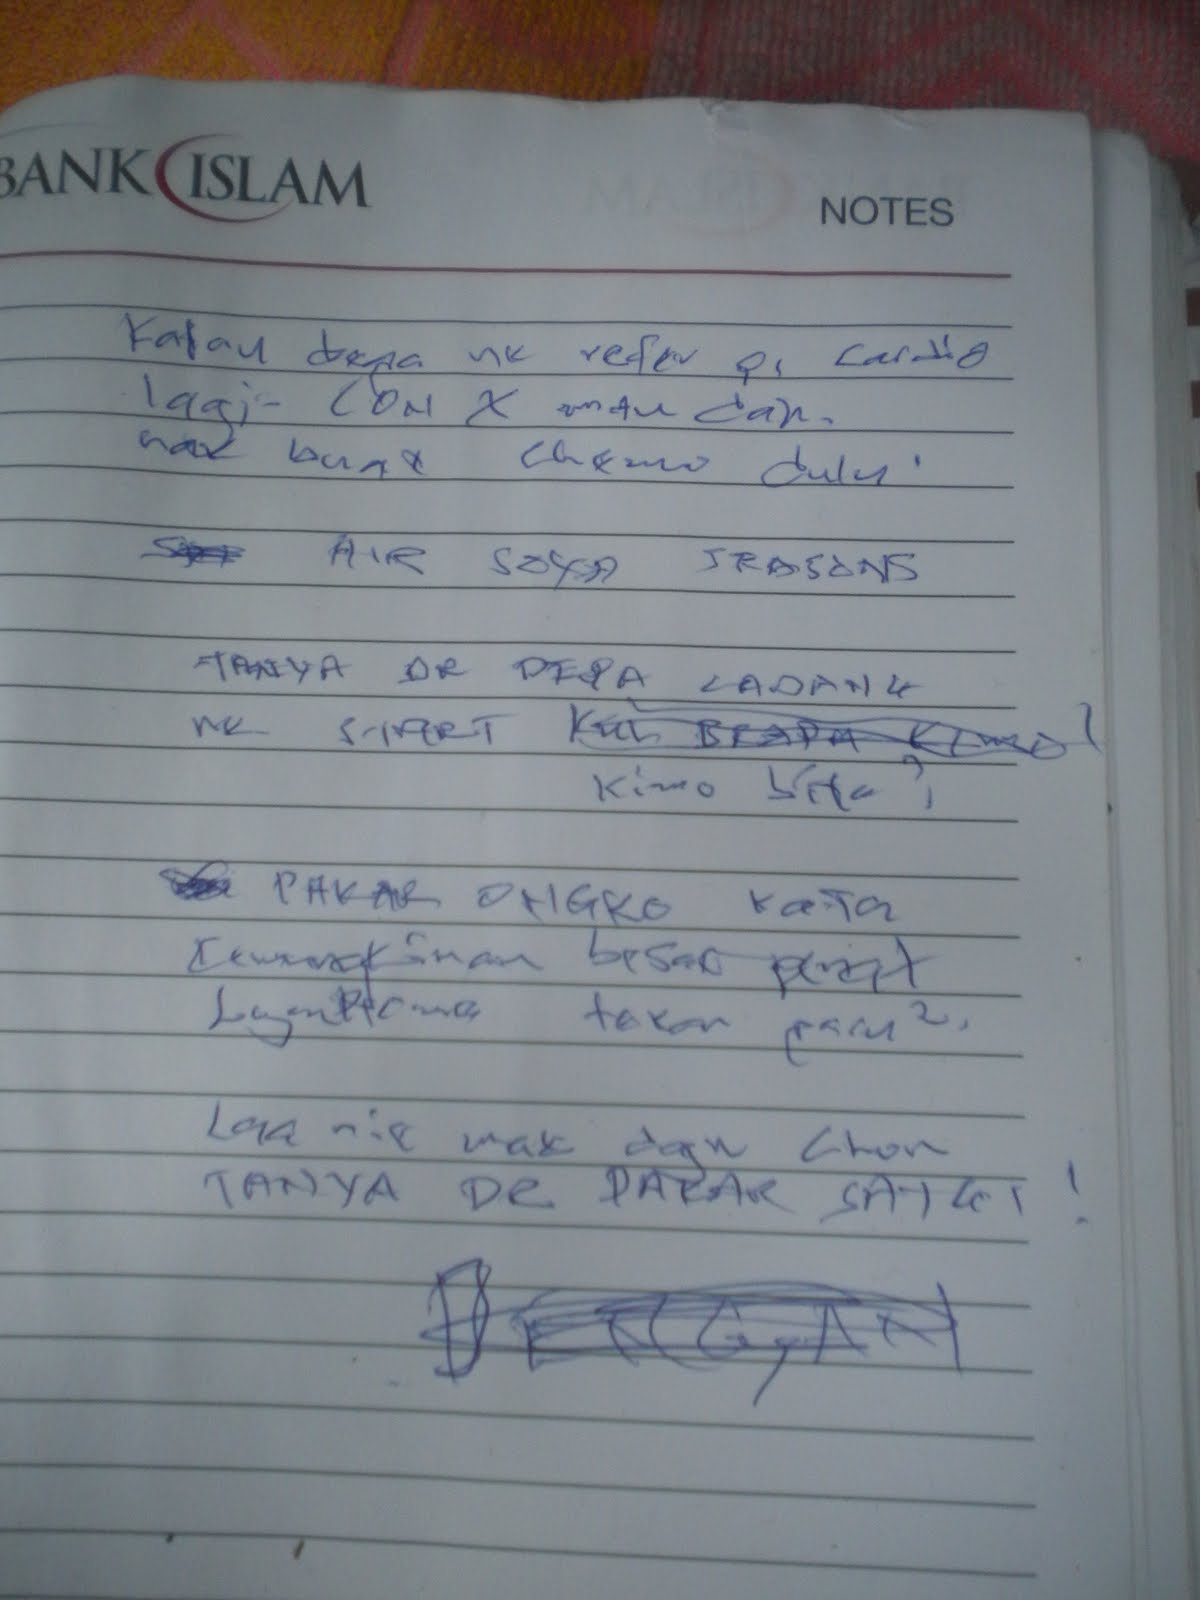 BANK ISLAM
NOTES
Kalau depa nk refer pi cardio
lagi- CON X mau dah.
nak buat chemo dulu
AIR SOYA SEASONS
TANYA DR DEPA CADANG
nk START BRAPA KIMO
Kimo bila?
PAKAR ONGKO kata
Kemungkinan besar penyakit
Lymphoma tekan paru2.
Laa nie mak dgn Chon
TANYA DR PAKAR SAJKI!